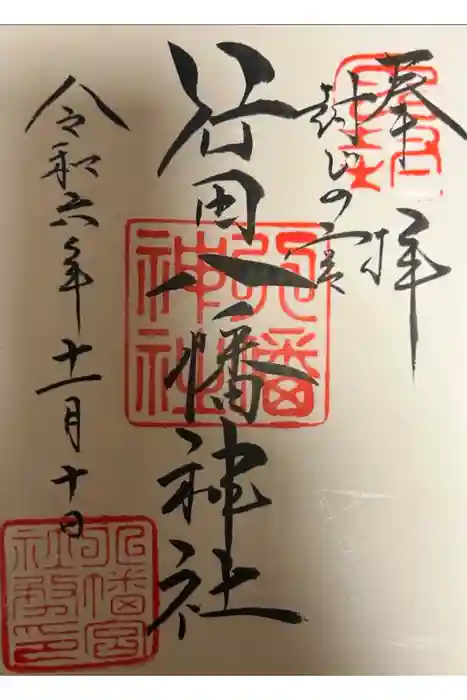 奉拝
封じの宮
行田八幡神社
令和六年十一月十日
八幡神社
八幡宮
社務所印